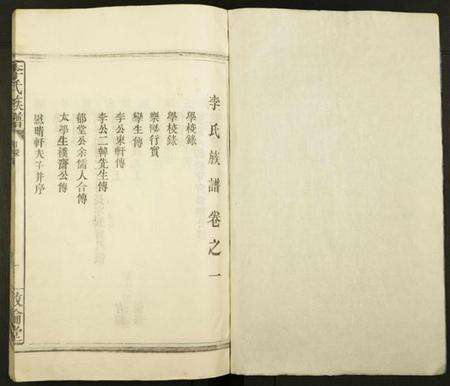 李氏族譜卷之一
學校錄
學校錄
行實
學生傳
李公東軒傳
李公二幹先生傳
郁堂公余孺人合傳
太學生漢齋公傳
晴軒夫子并序
李氏族譜
敦倫堂